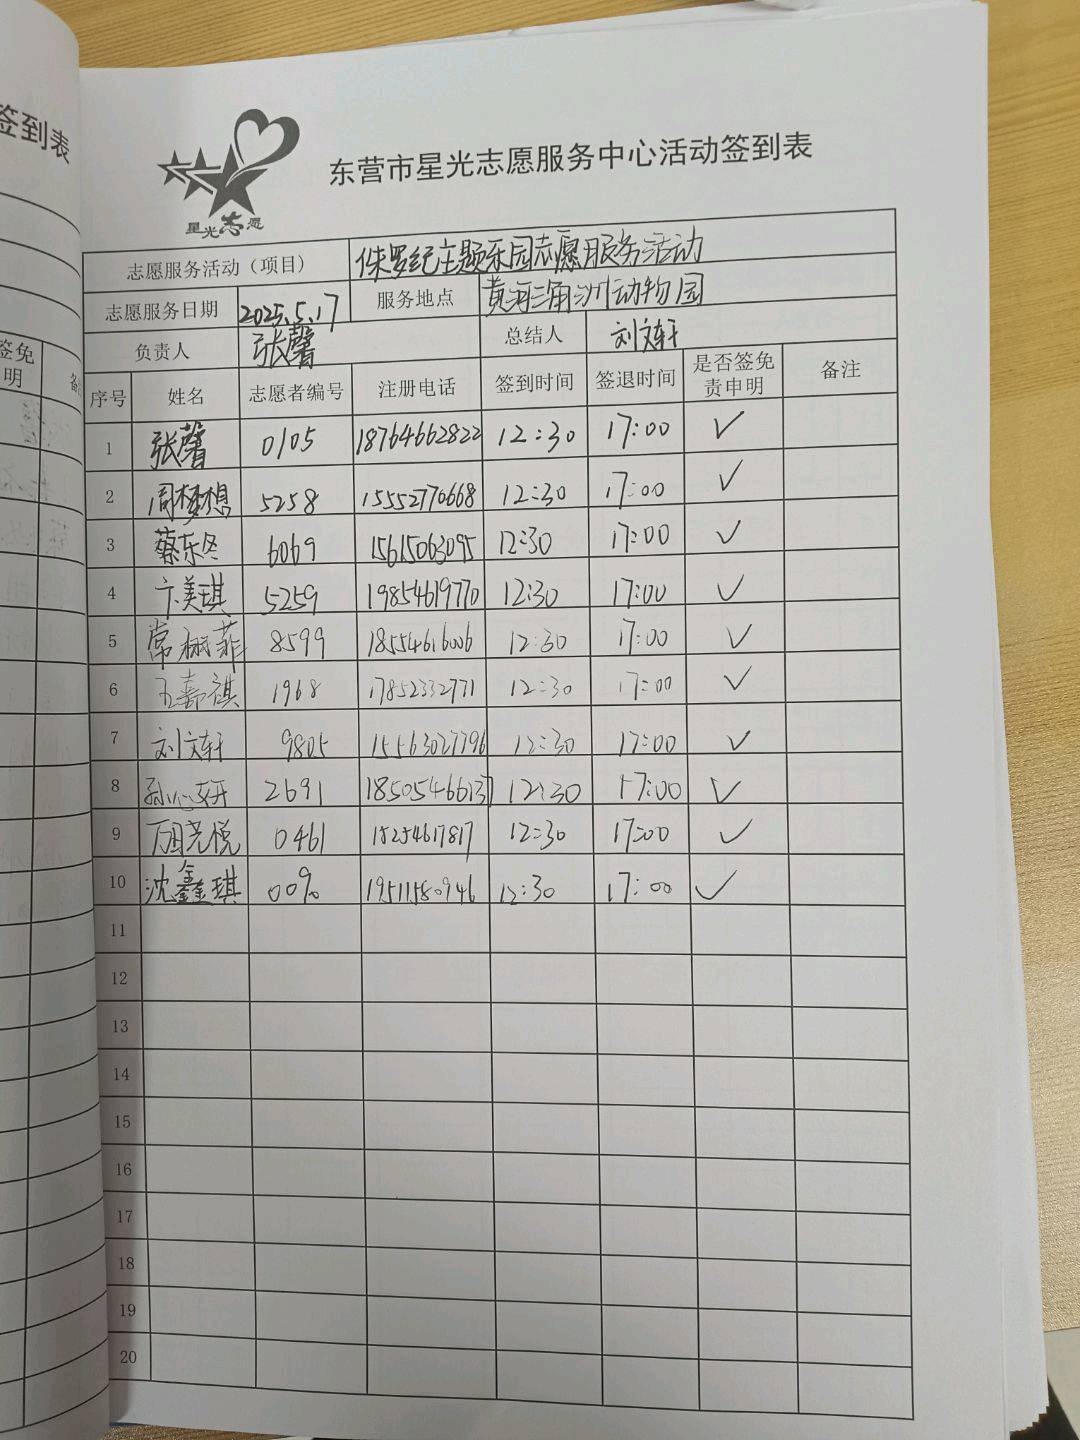 签到表
签免
明
备
星光志愿
东营市星光志愿服务中心活动签到表
志愿服务活动（项目） 侏罗纪主题乐园志愿服务活动
志愿服务日期 2025.5.17 服务地点 黄河三角洲动物园
负责人 张馨 总结人 刘文轩
序号 姓名 志愿者编号 注册电话 签到时间 签退时间 是否签免责申明 备注
1 张馨 0105 18764662822 12:30 17:00 ✓
2 周梦想 5258 15552770668 12:30 17:00 ✓
3 蔡东冬 6069 15615063095 12:30 17:00 ✓
4 卞美琪 5259 19854619770 12:30 17:00 ✓
5 常 菲 8599 18554616006 12:30 17:00 ✓
6 王嘉祺 1968 17852332771 12:30 17:00 ✓
7 刘文轩 9805 15563027796 12:30 17:00 ✓
8 孙心妍 2691 18505466137 12:30 17:00 ✓
9 万尧悦 0461 15254617817 12:30 17:00 ✓
10 沈鑫琪 0096 19511580946 12:30 17:00 ✓
11
12
13
14
15
16
17
18
19
20